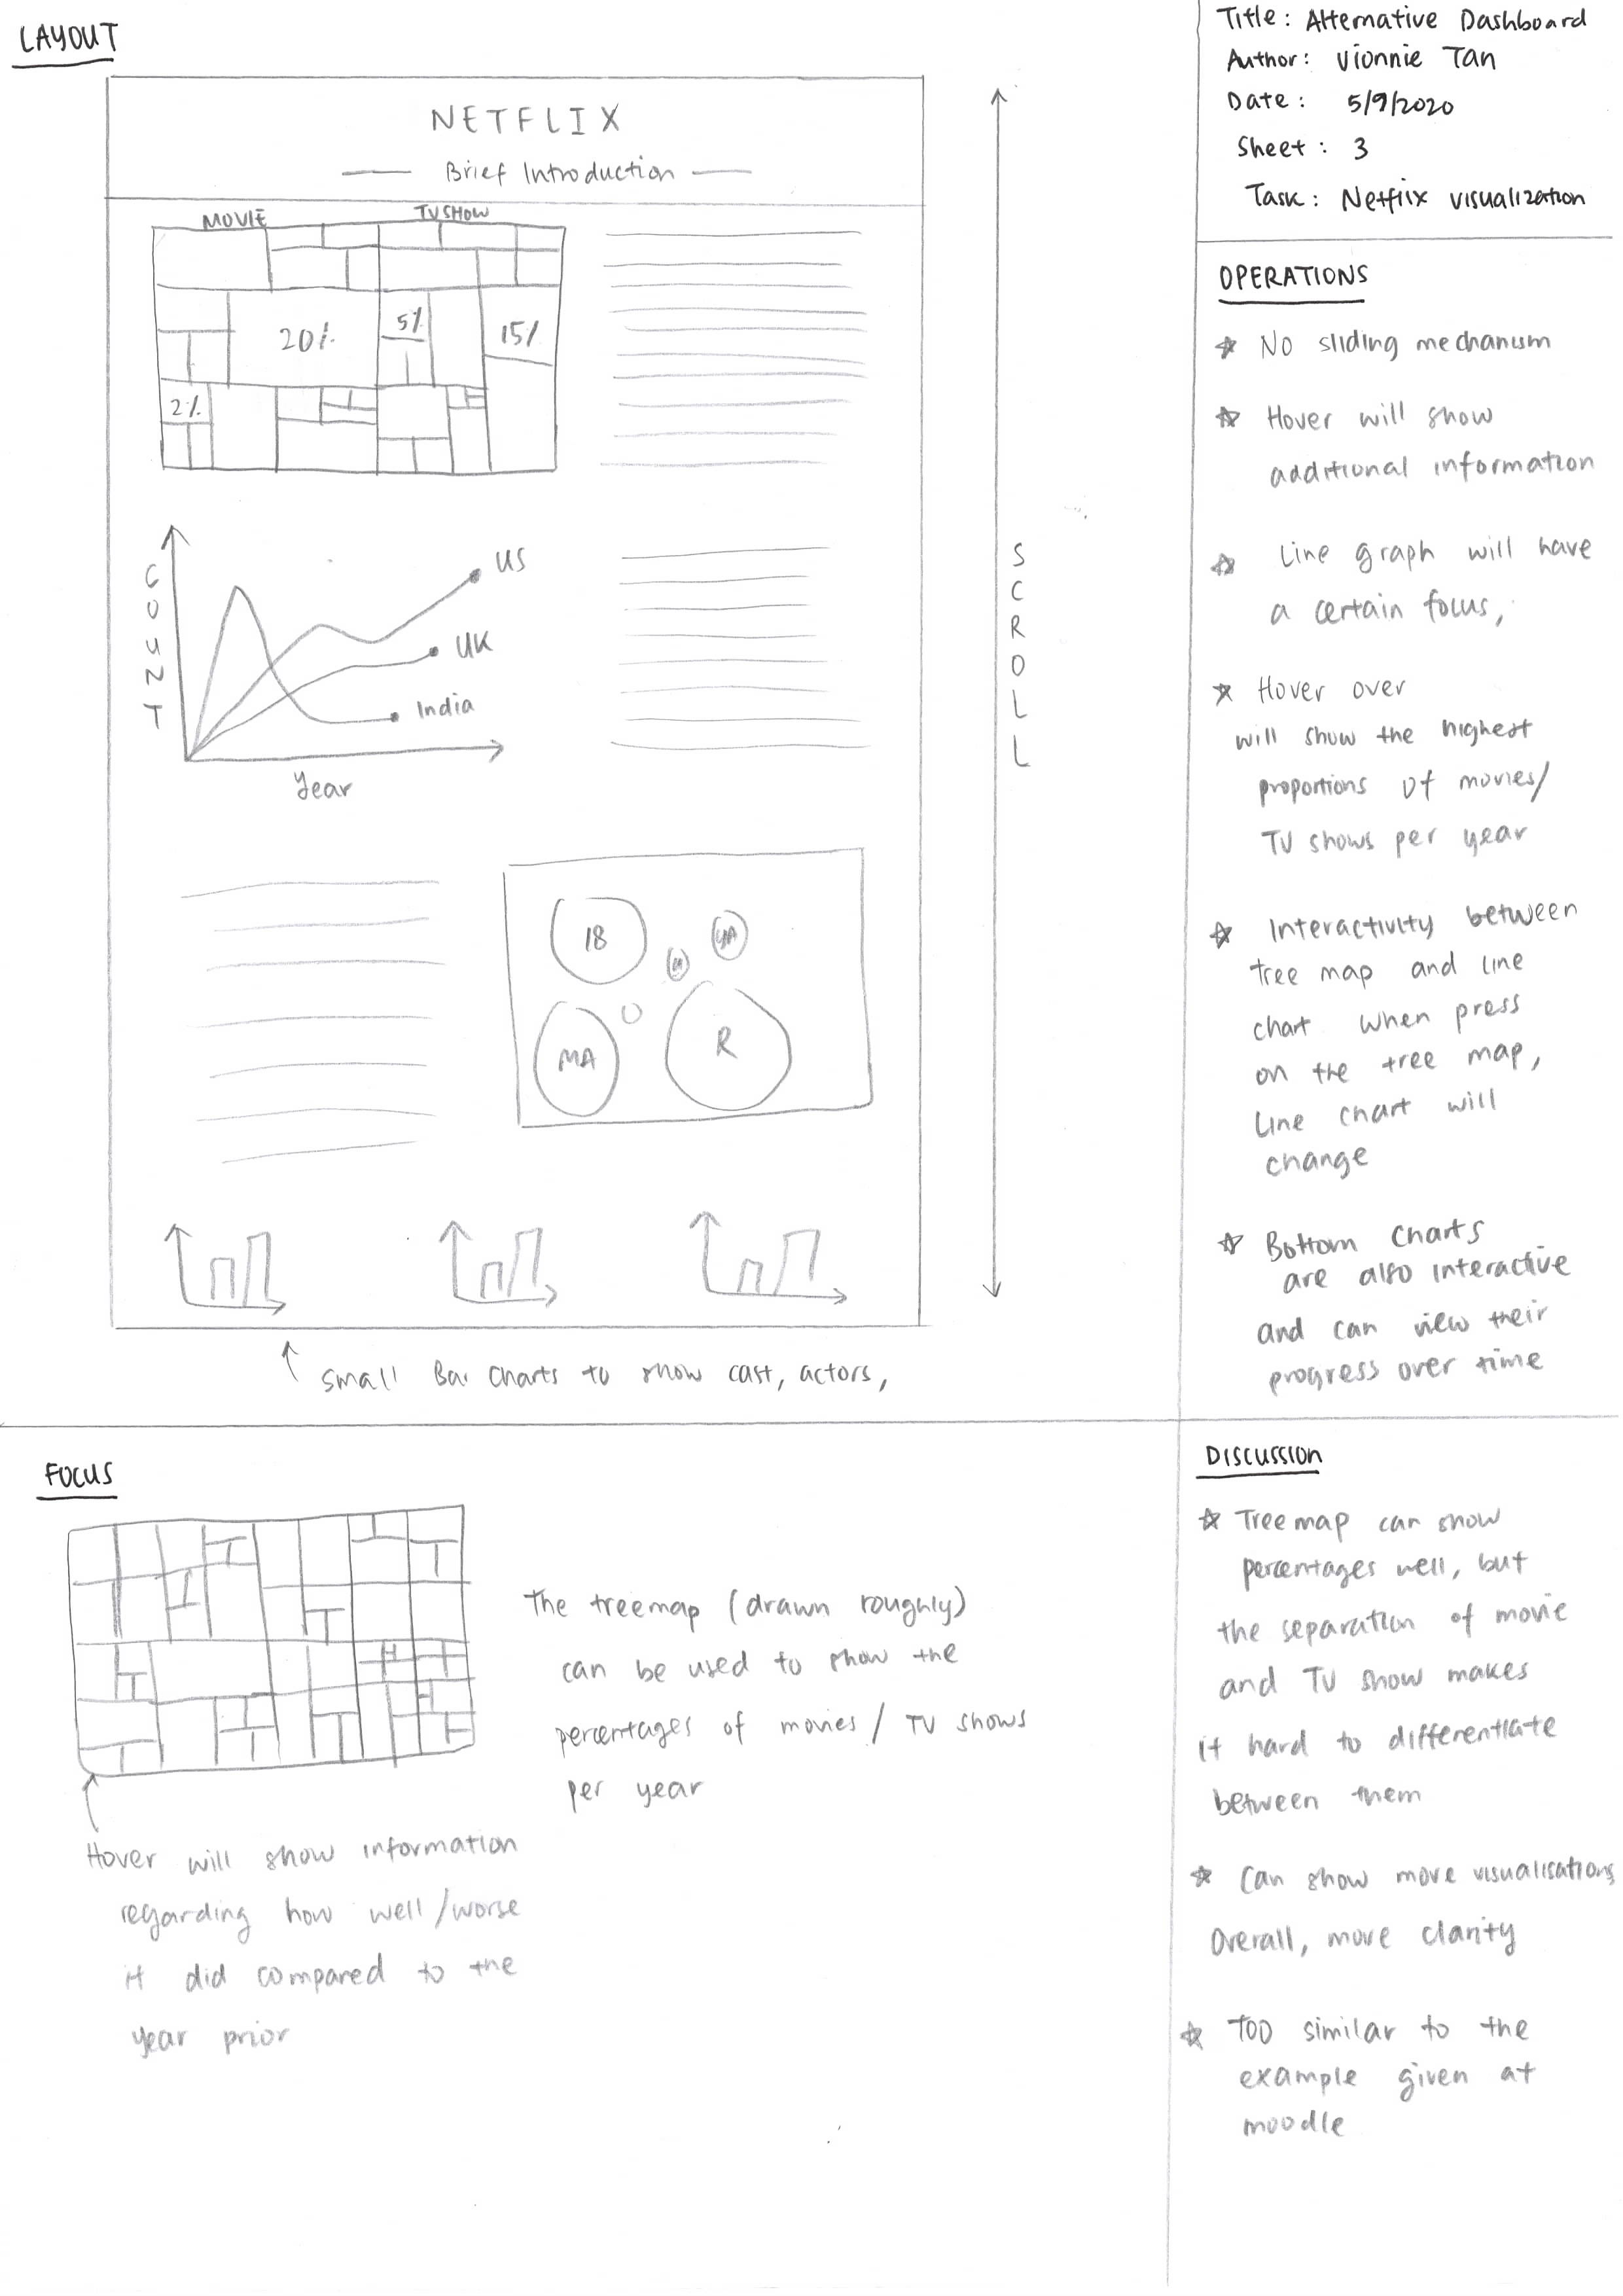 LAYOUT
NETFLIX
Brief Introduction
MOVIE
TV SHOW
20%
5%
15%
2%
COUNT
US
UK
India
Year
18
MA
R
SCROLL
Small Bar Charts to show cast, actors,
Title: Alternative Dashboard
Author: Vionnie Tan
Date: 5/9/2020
Sheet: 3
Task: Netflix visualization
OPERATIONS
☆ No sliding mechanism
☆ Hover will show
additional information
☆ Line graph will have
a certain focus,
☆ Hover over
will show the highest
proportions of movies/
TV shows per year
☆ Interactivity between
tree map and line
chart when press
on the tree map,
Line chart will
change
☆ Bottom Charts
are also interactive
and can view their
progress over time
FOCUS
The treemap (drawn roughly)
can be used to show the
percentages of movies / TV shows
per year
Hover will show information
regarding how well/worse
it did compared to the
year prior
DISCUSSION
☆ Treemap can show
percentages well, but
the separation of movie
and TV show makes
it hard to differentiate
between them
☆ Can show more visualisations
Overall, more clarity
☆ Too similar to the
example given at
moodle